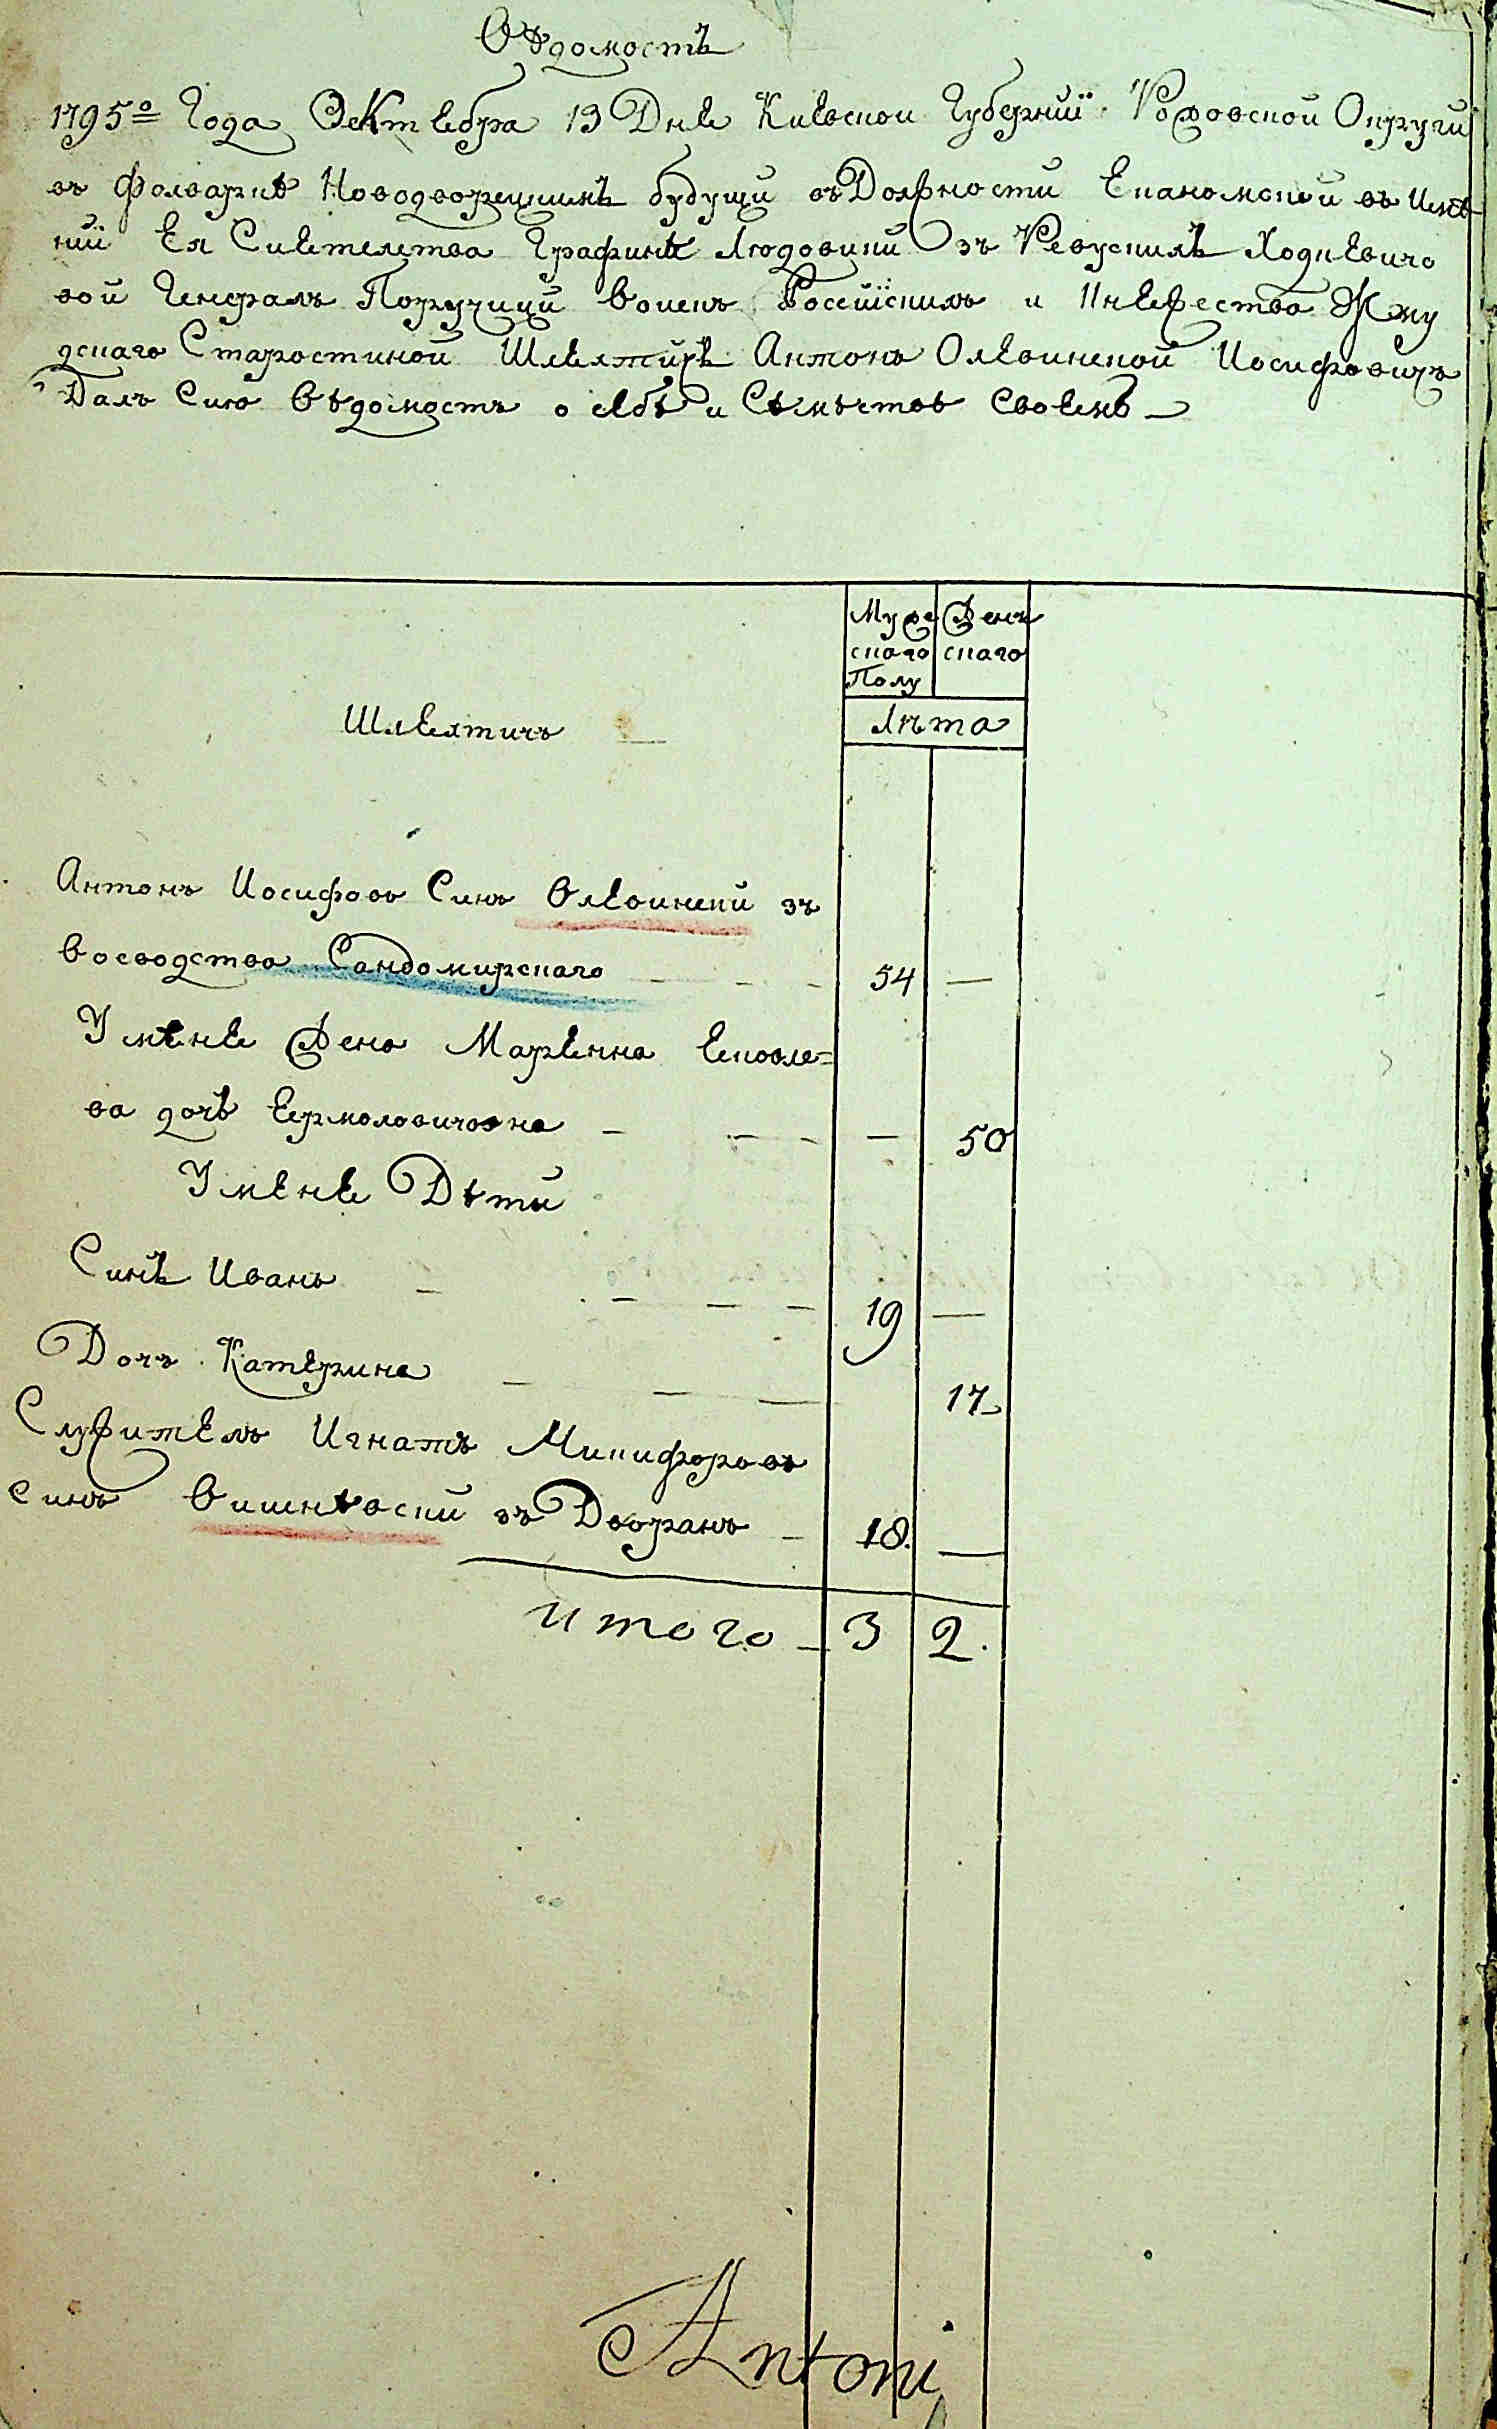 Вѣдомость
1795го Года Октебра 13 Дне Киевской Губерний Ро Округи
въ Фолваркѣ Новодворецкимъ будущи въ Должности Економской въ Име
ний Ея Сиетелства Графинѣ Людовики зъ Ревускихъ Ходкевичо
вой Генералъ Поручици Воискъ Росеийскихъ и Кнежества Жму
дскаго Старостиной Шлехтичъ Антонъ Олевинской Иосифовичъ
Далъ Сию Вѣдомость о себѣ и Сѣмѣствѣ своемъ
Муже Женъ
скаго скаго
Полу
Шлехтичъ
Лѣта
Антонъ Иосифовъ Синъ Олевинский зъ
Воеводства Сандомирскаго 54 —
У мене Жена Мариенна
ва дочь Ермоловичовна — 50
У мене Дѣти
Синъ Иванъ 19 —
Дочъ Катерина 17
Служителъ Игнатъ Микифоровъ
синъ Вишнѣвский зъ Дворанъ 18. —
итого 3 2.
Antoni